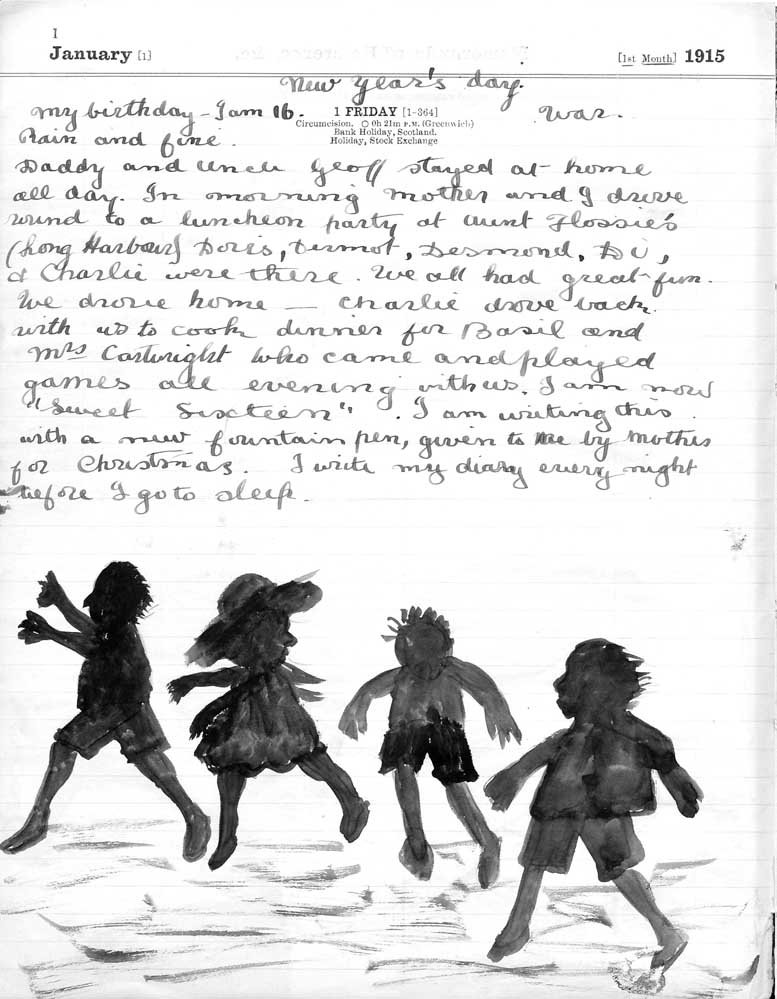 1
January [1]
[1st Month] 1915
New Year's day.
My birthday - I am 16.
1 FRIDAY [1-364]
War.
Circumcision. ○ 0h 21m P.M. (Greenwich)
Bank Holiday, Scotland.
Holiday, Stock Exchange
Rain and fine.
Daddy and Uncle Geoff stayed at home
all day. In morning Mother and I drove
round to a luncheon party at Aunt Flossie's
(Long Harbour) Doris, Dermot, Desmond, Di,
& Charlie were there. We all had great fun.
We drove home — Charlie drove back
with us to cook dinner for Basil and
Mrs Cartwright who came and played
games all evening with us. I am now
"Sweet Sixteen". I am writing this
with a new fountain pen, given to me by Mother
for Christmas. I write my diary every night
before I go to sleep.